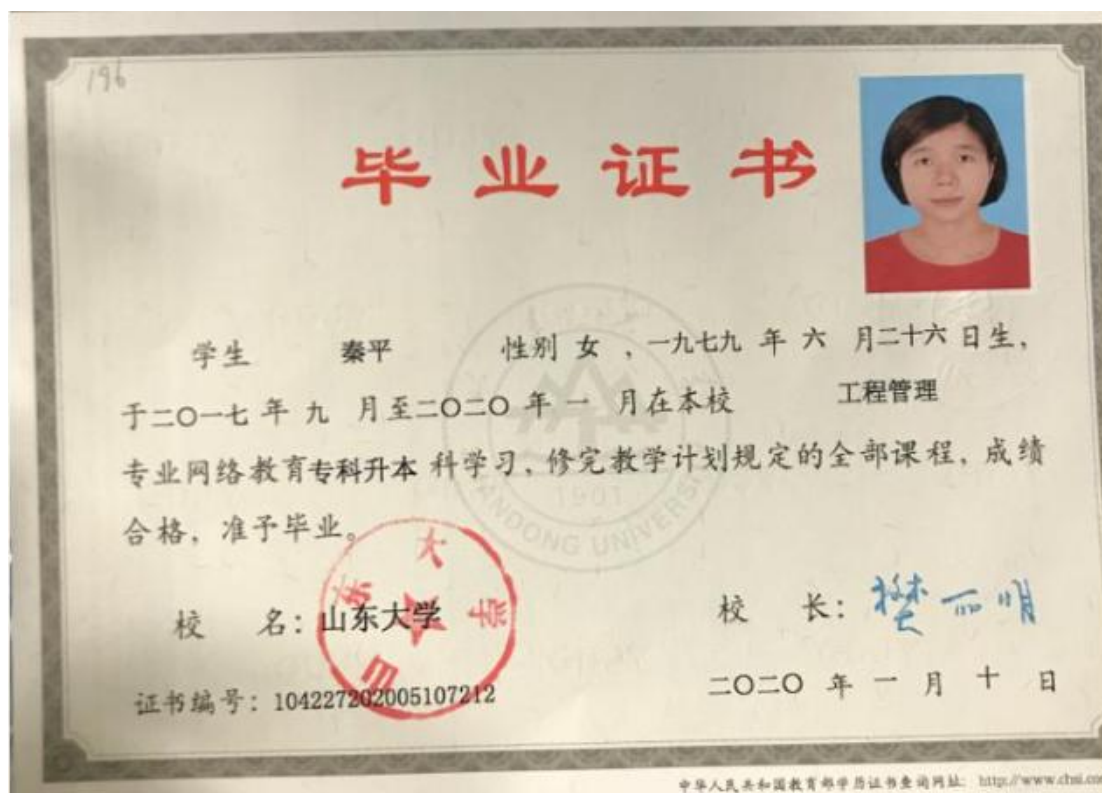 196
毕业证书
学生 秦平 性别 女 ，一九七九 年 六 月二十六 日生，
于二〇一七 年 九 月至二〇二〇 年 一 月在本校 工程管理
专业网络教育专科升本 科学习，修完教学计划规定的全部课程，成绩
合格，准予毕业。
1901
SHANDONG UNIVERSITY
山东大学
校 名：山东大学 校 长：樊丽明
证书编号：104227202005107212 二〇二〇 年 一 月 十 日
中华人民共和国教育部学历证书查询网址： http://www.chsi.com